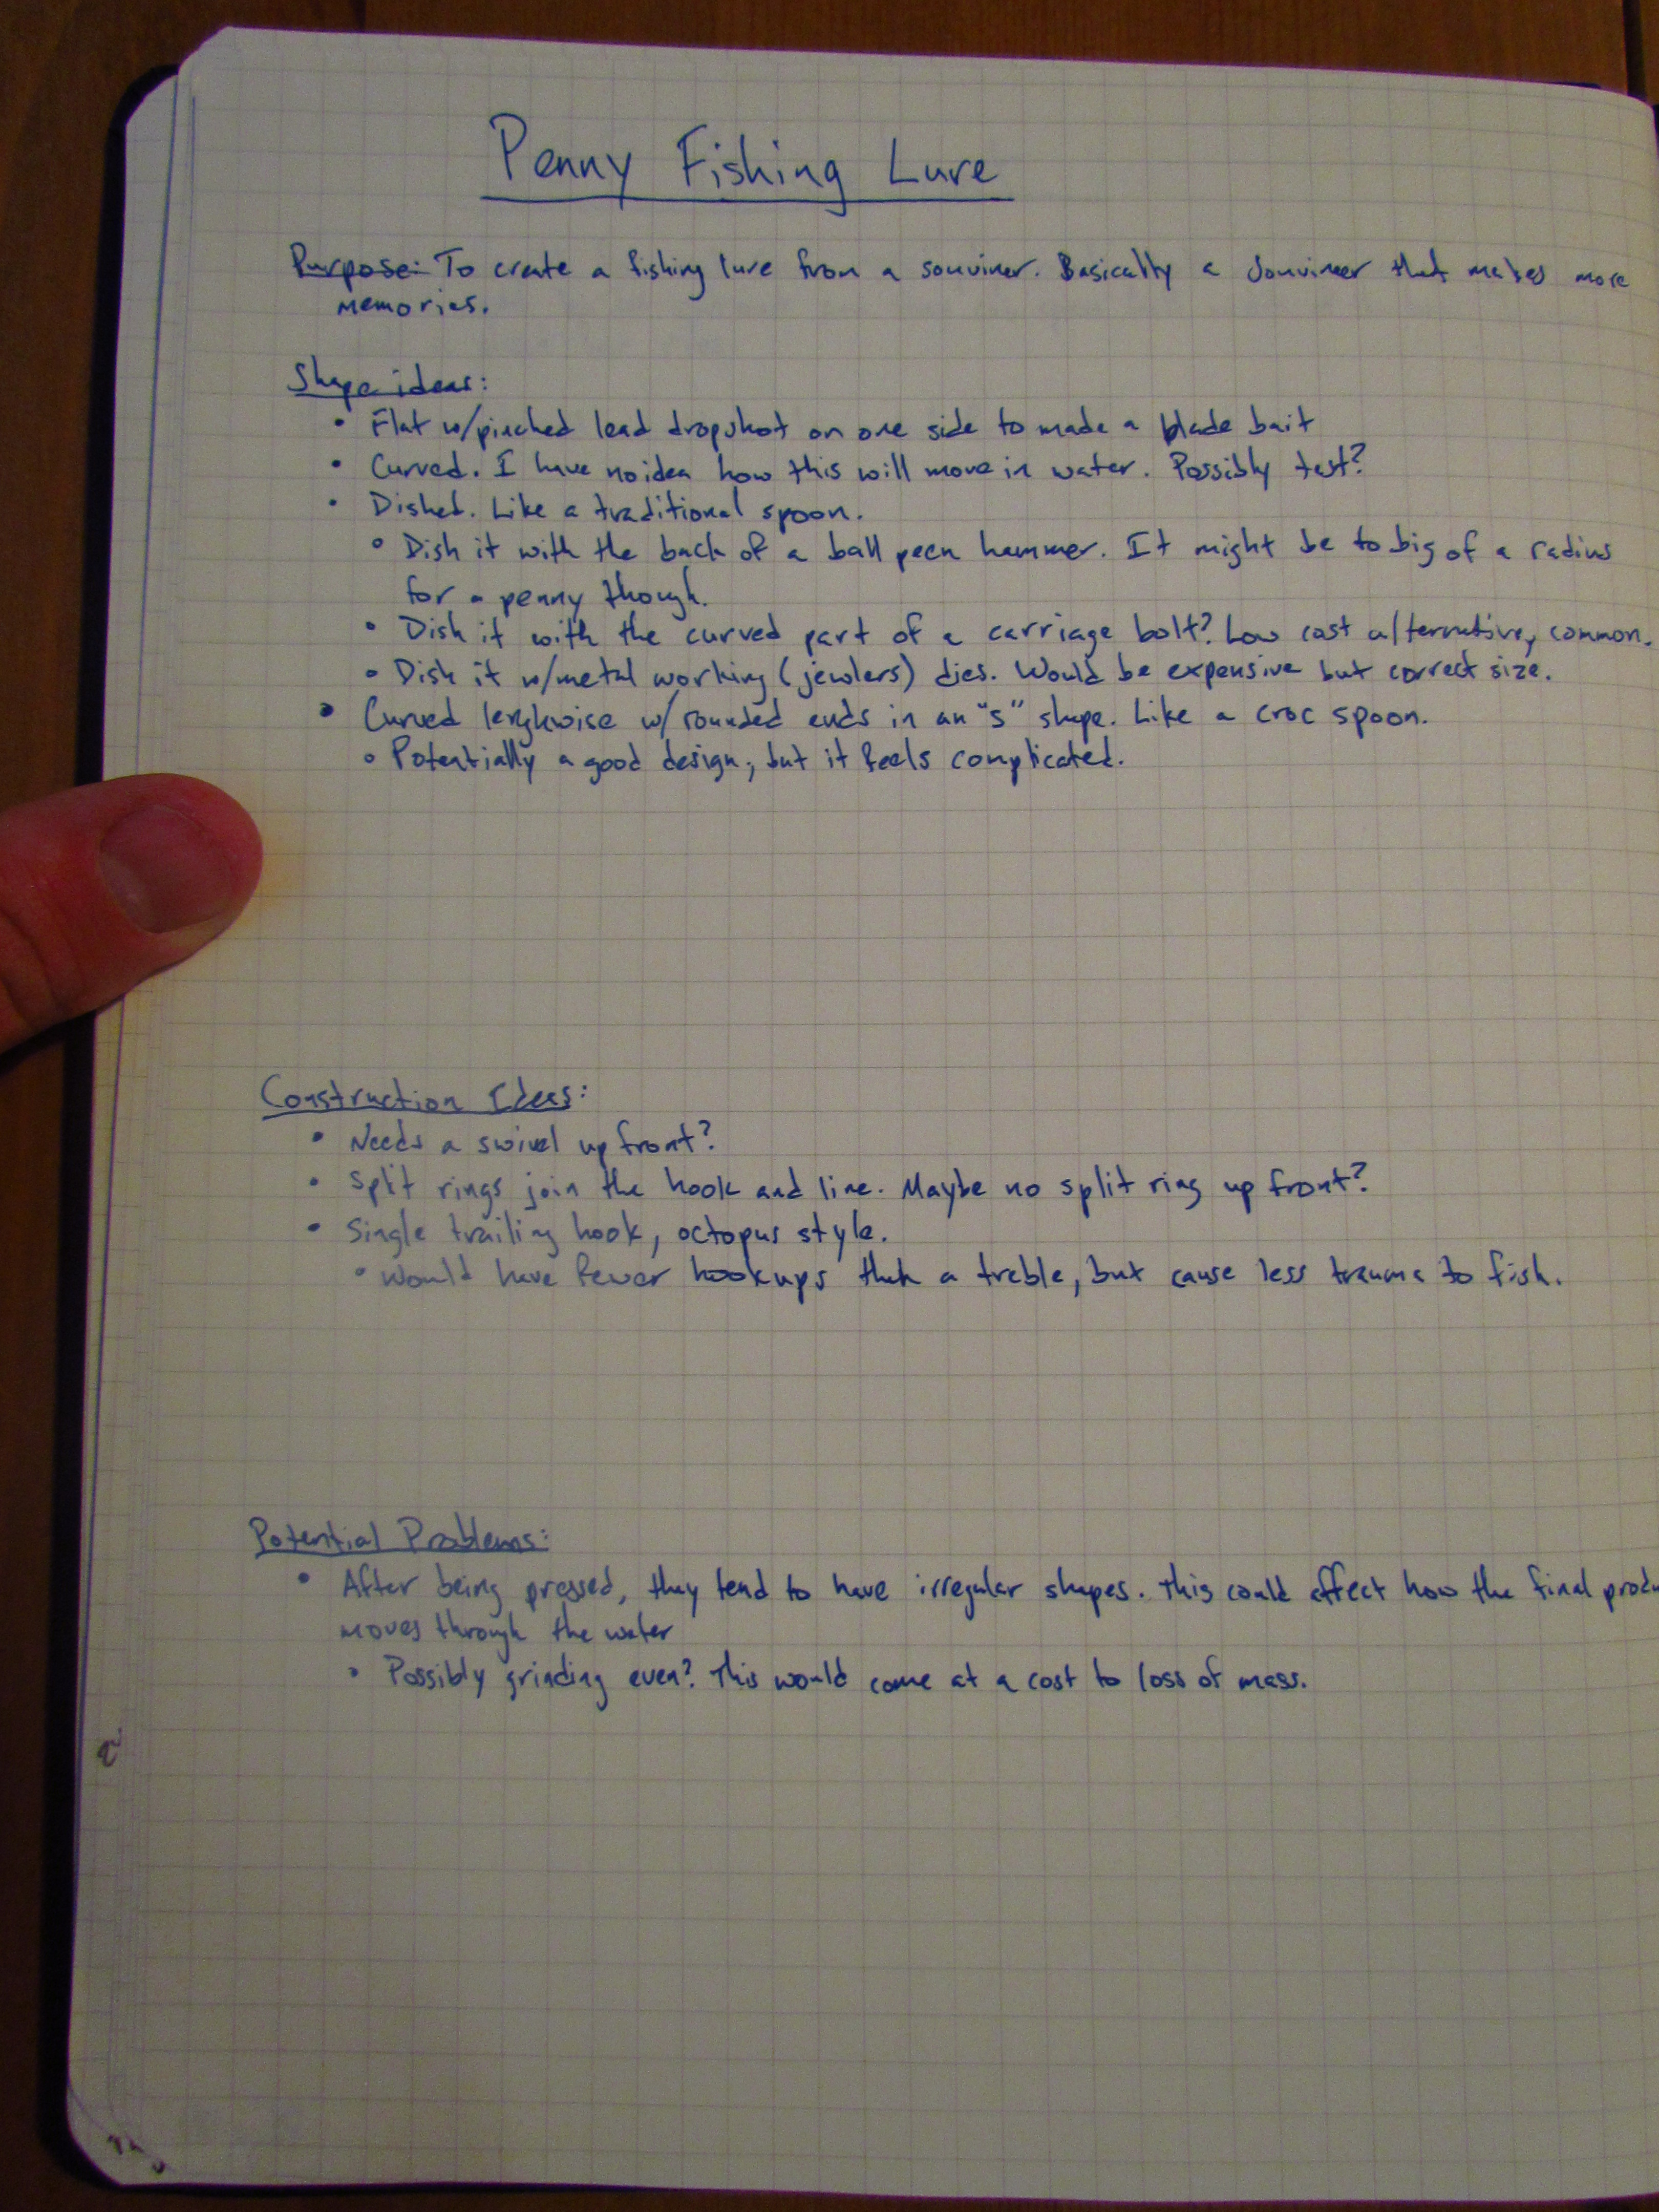 Penny Fishing Lure
Purpose: To create a fishing lure from a souviner. Basically a souvineer that makes more
memories.
Shape ideas:
• Flat w/pinched lead dropshot on one side to made a blade bait
• Curved. I have no idea how this will move in water. Possibly test?
• Dished. Like a traditional spoon.
• Dish it with the back of a ball peen hammer. It might be to big of a radius
for a penny though.
• Dish it with the curved part of a carriage bolt? Low cost alternative, common.
• Dish it w/metal working (jewlers) dies. Would be expensive but correct size.
• Curved lengthwise w/ rounded ends in an "s" shape. Like a croc spoon.
• Potentially a good design, but it feels complicated.
Construction Ideas:
• Needs a swivel up front?
• Split rings join the hook and line. Maybe no split ring up front?
• Single trailing hook, octopus style.
• Would have fewer hookups than a treble, but cause less trauma to fish.
Potential Problems:
• After being pressed, they tend to have irregular shapes. This could affect how the final produ
moves through the water
• Possibly grinding even? This would come at a cost to loss of mass.